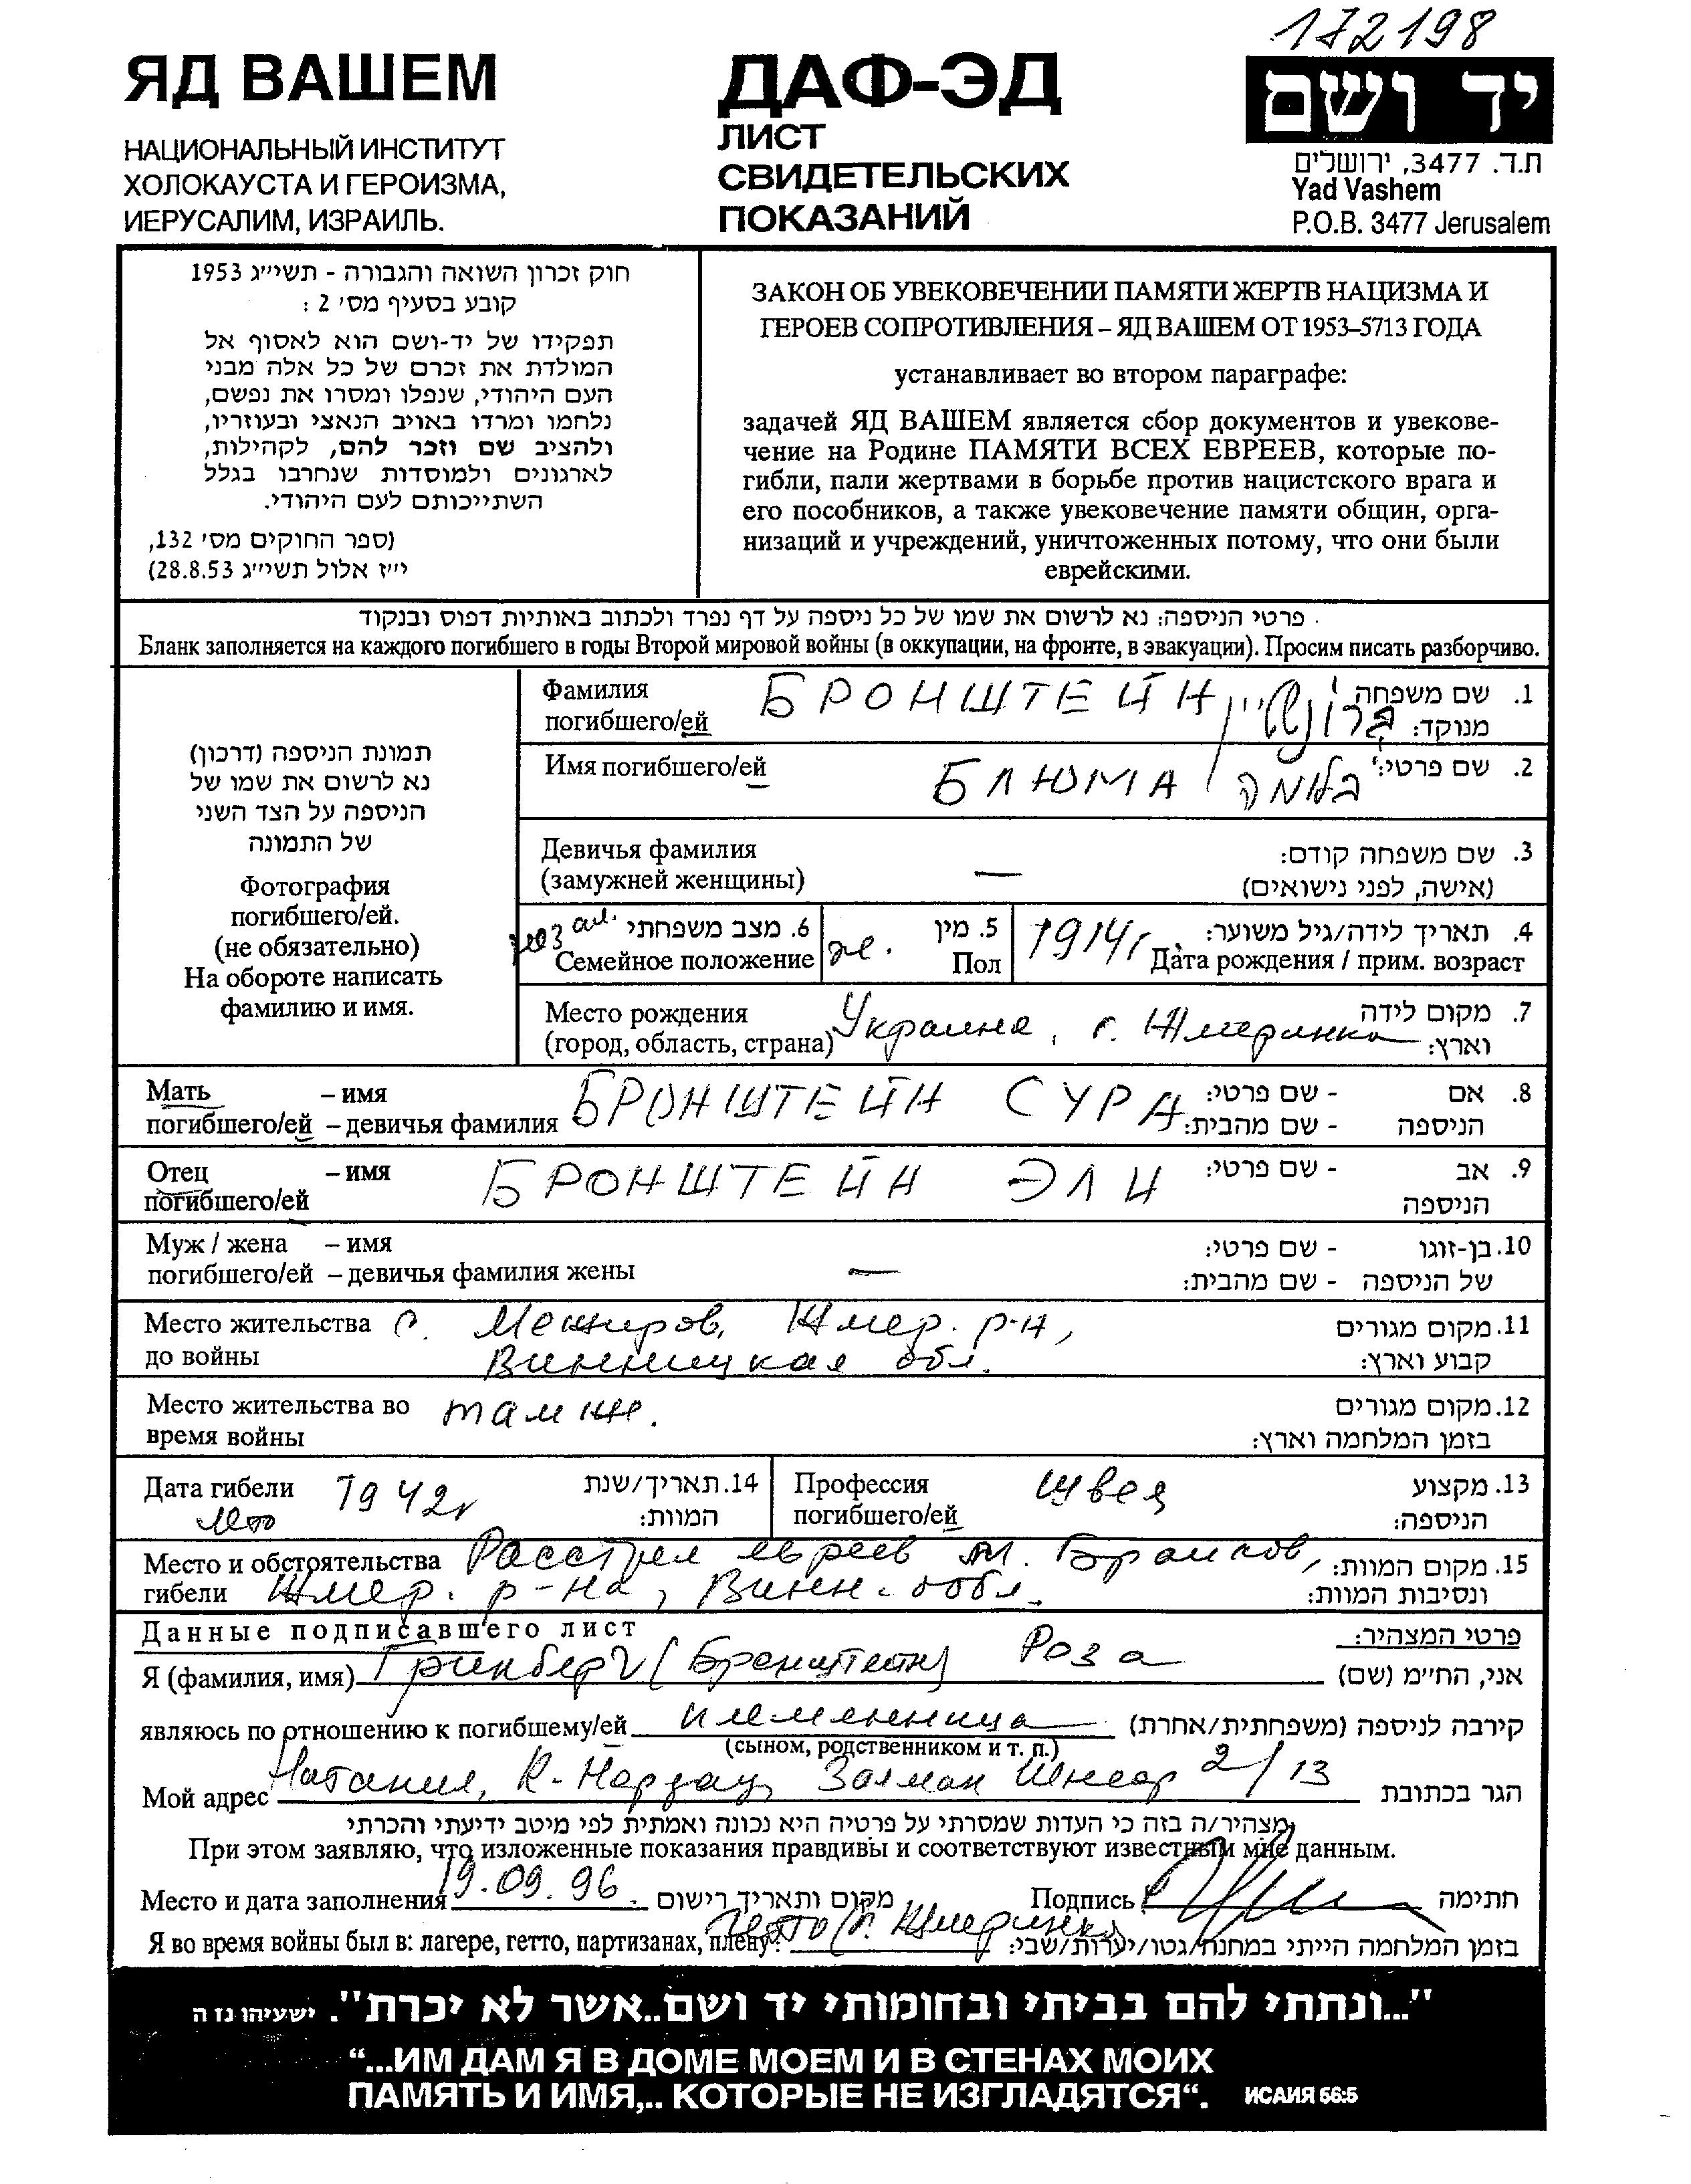 172198
ЯД ВАШЕМ
НАЦИОНАЛЬНЫЙ ИНСТИТУТ
ХОЛОКАУСТА И ГЕРОИЗМА,
ИЕРУСАЛИМ, ИЗРАИЛЬ.
ДАФ-ЭД
ЛИСТ
СВИДЕТЕЛЬСКИХ
ПОКАЗАНИЙ
יד ושם
ת.ד. 3477, ירושלים
Yad Vashem
P.O.B. 3477 Jerusalem
חוק זכרון השואה והגבורה - תשי״ג 1953
קובע בסעיף מס׳ 2 :
תפקידו של יד-ושם הוא לאסוף אל
המולדת את זכרם של כל אלה מבני
העם היהודי, שנפלו ומסרו את נפשם,
נלחמו ומרדו באויב הנאצי ובעוזריו,
ולהציב שם וזכר להם, לקהילות,
לארגונים ולמוסדות שנחרבו בגלל
השתייכותם לעם היהודי.
(ספר החוקים מס׳ 132,
י״ז אלול תשי״ג 28.8.53)
ЗАКОН ОБ УВЕКОВЕЧЕНИИ ПАМЯТИ ЖЕРТВ НАЦИЗМА И
ГЕРОЕВ СОПРОТИВЛЕНИЯ – ЯД ВАШЕМ ОТ 1953–5713 ГОДА
устанавливает во втором параграфе:
задачей ЯД ВАШЕМ является сбор документов и увекове-
чение на Родине ПАМЯТИ ВСЕХ ЕВРЕЕВ, которые по-
гибли, пали жертвами в борьбе против нацистского врага и
его пособников, а также увековечение памяти общин, орга-
низаций и учреждений, уничтоженных потому, что они были
еврейскими.
פרטי הניספה: נא לרשום את שמו של כל ניספה על דף נפרד ולכתוב באותיות דפוס ובנקוד
Бланк заполняется на каждого погибшего в годы Второй мировой войны (в оккупации, на фронте, в эвакуации). Просим писать разборчиво.
תמונת הניספה (דרכון)
נא לרשום את שמו של
הניספה על הצד השני
של התמונה
Фотография
погибшего/ей.
(не обязательно)
На обороте написать
фамилию и имя.
Фамилия БРОНШТЕЙН ברונשטיין 1. שם משפחה
погибшего/ей מנוקד:
Имя погибшего/ей БЛЮМА בלומה 2. שם פרטי:
Девичья фамилия — 3. שם משפחה קודם:
(замужней женщины) (אישה, לפני נישואים)
6. מצב משפחתי 5. מין 1914г. 4. תאריך לידה/גיל משוער:
Семейное положение ж. Пол Дата рождения / прим. возраст
Место рождения Украина, г. Жмеринка 7. מקום לידה
(город, область, страна) וארץ:
Мать – имя БРОНШТЕЙН СУРА - שם פרטי: 8. אם
погибшего/ей – девичья фамилия - שם מהבית: הניספה
Отец – имя БРОНШТЕЙН ЭЛИ - שם פרטי: 9. אב
погибшего/ей הניספה
Муж / жена – имя - שם פרטי: 10. בן-זוגו
погибшего/ей – девичья фамилия жены — - שם מהבית: של הניספה
Место жительства с. Межиров, Жмер. р-н, 11. מקום מגורים
до войны Винницкая обл. קבוע וארץ:
Место жительства во там же. 12. מקום מגורים
время войны בזמן המלחמה וארץ:
Дата гибели 1942г 14. תאריך/שנת Профессия швея 13. מקצוע
лето המוות: погибшего/ей הניספה:
Место и обстоятельства Расстрел евреев м. Браилов, 15. מקום המוות:
гибели Жмер. р-на, Винн. обл. ונסיבות המוות:
Данные подписавшего лист פרטי המצהיר:
Я (фамилия, имя) Гринберг (Бронштейн) Роза אני, הח״מ (שם)
являюсь по отношению к погибшему/ей племянница קירבה לניספה (משפחתית/אחרת)
(сыном, родственником и т. п.)
Мой адрес Натания, К-Нордау, Залман Шнеор 2/13 הגר בכתובת
מצהיר/ה בזה כי העדות שמסרתי על פרטיה היא נכונה ואמתית לפי מיטב ידיעתי והכרתי
При этом заявляю, что изложенные показания правдивы и соответствуют известным мне данным.
Место и дата заполнения 19.09.96. מקום ותאריך רישום Подпись חתימה
Я во время войны был в: лагере, гетто, партизанах, плену? гетто г. Жмеринка בזמן המלחמה הייתי במחנה/גטו/יערות/שבי:
"...ונתתי להם בביתי ובחומותי יד ושם..אשר לא יכרת". ישעיהו נז ה
“...ИМ ДАМ Я В ДОМЕ МОЕМ И В СТЕНАХ МОИХ
ПАМЯТЬ И ИМЯ,.. КОТОРЫЕ НЕ ИЗГЛАДЯТСЯ“. ИСАИЯ 56:5